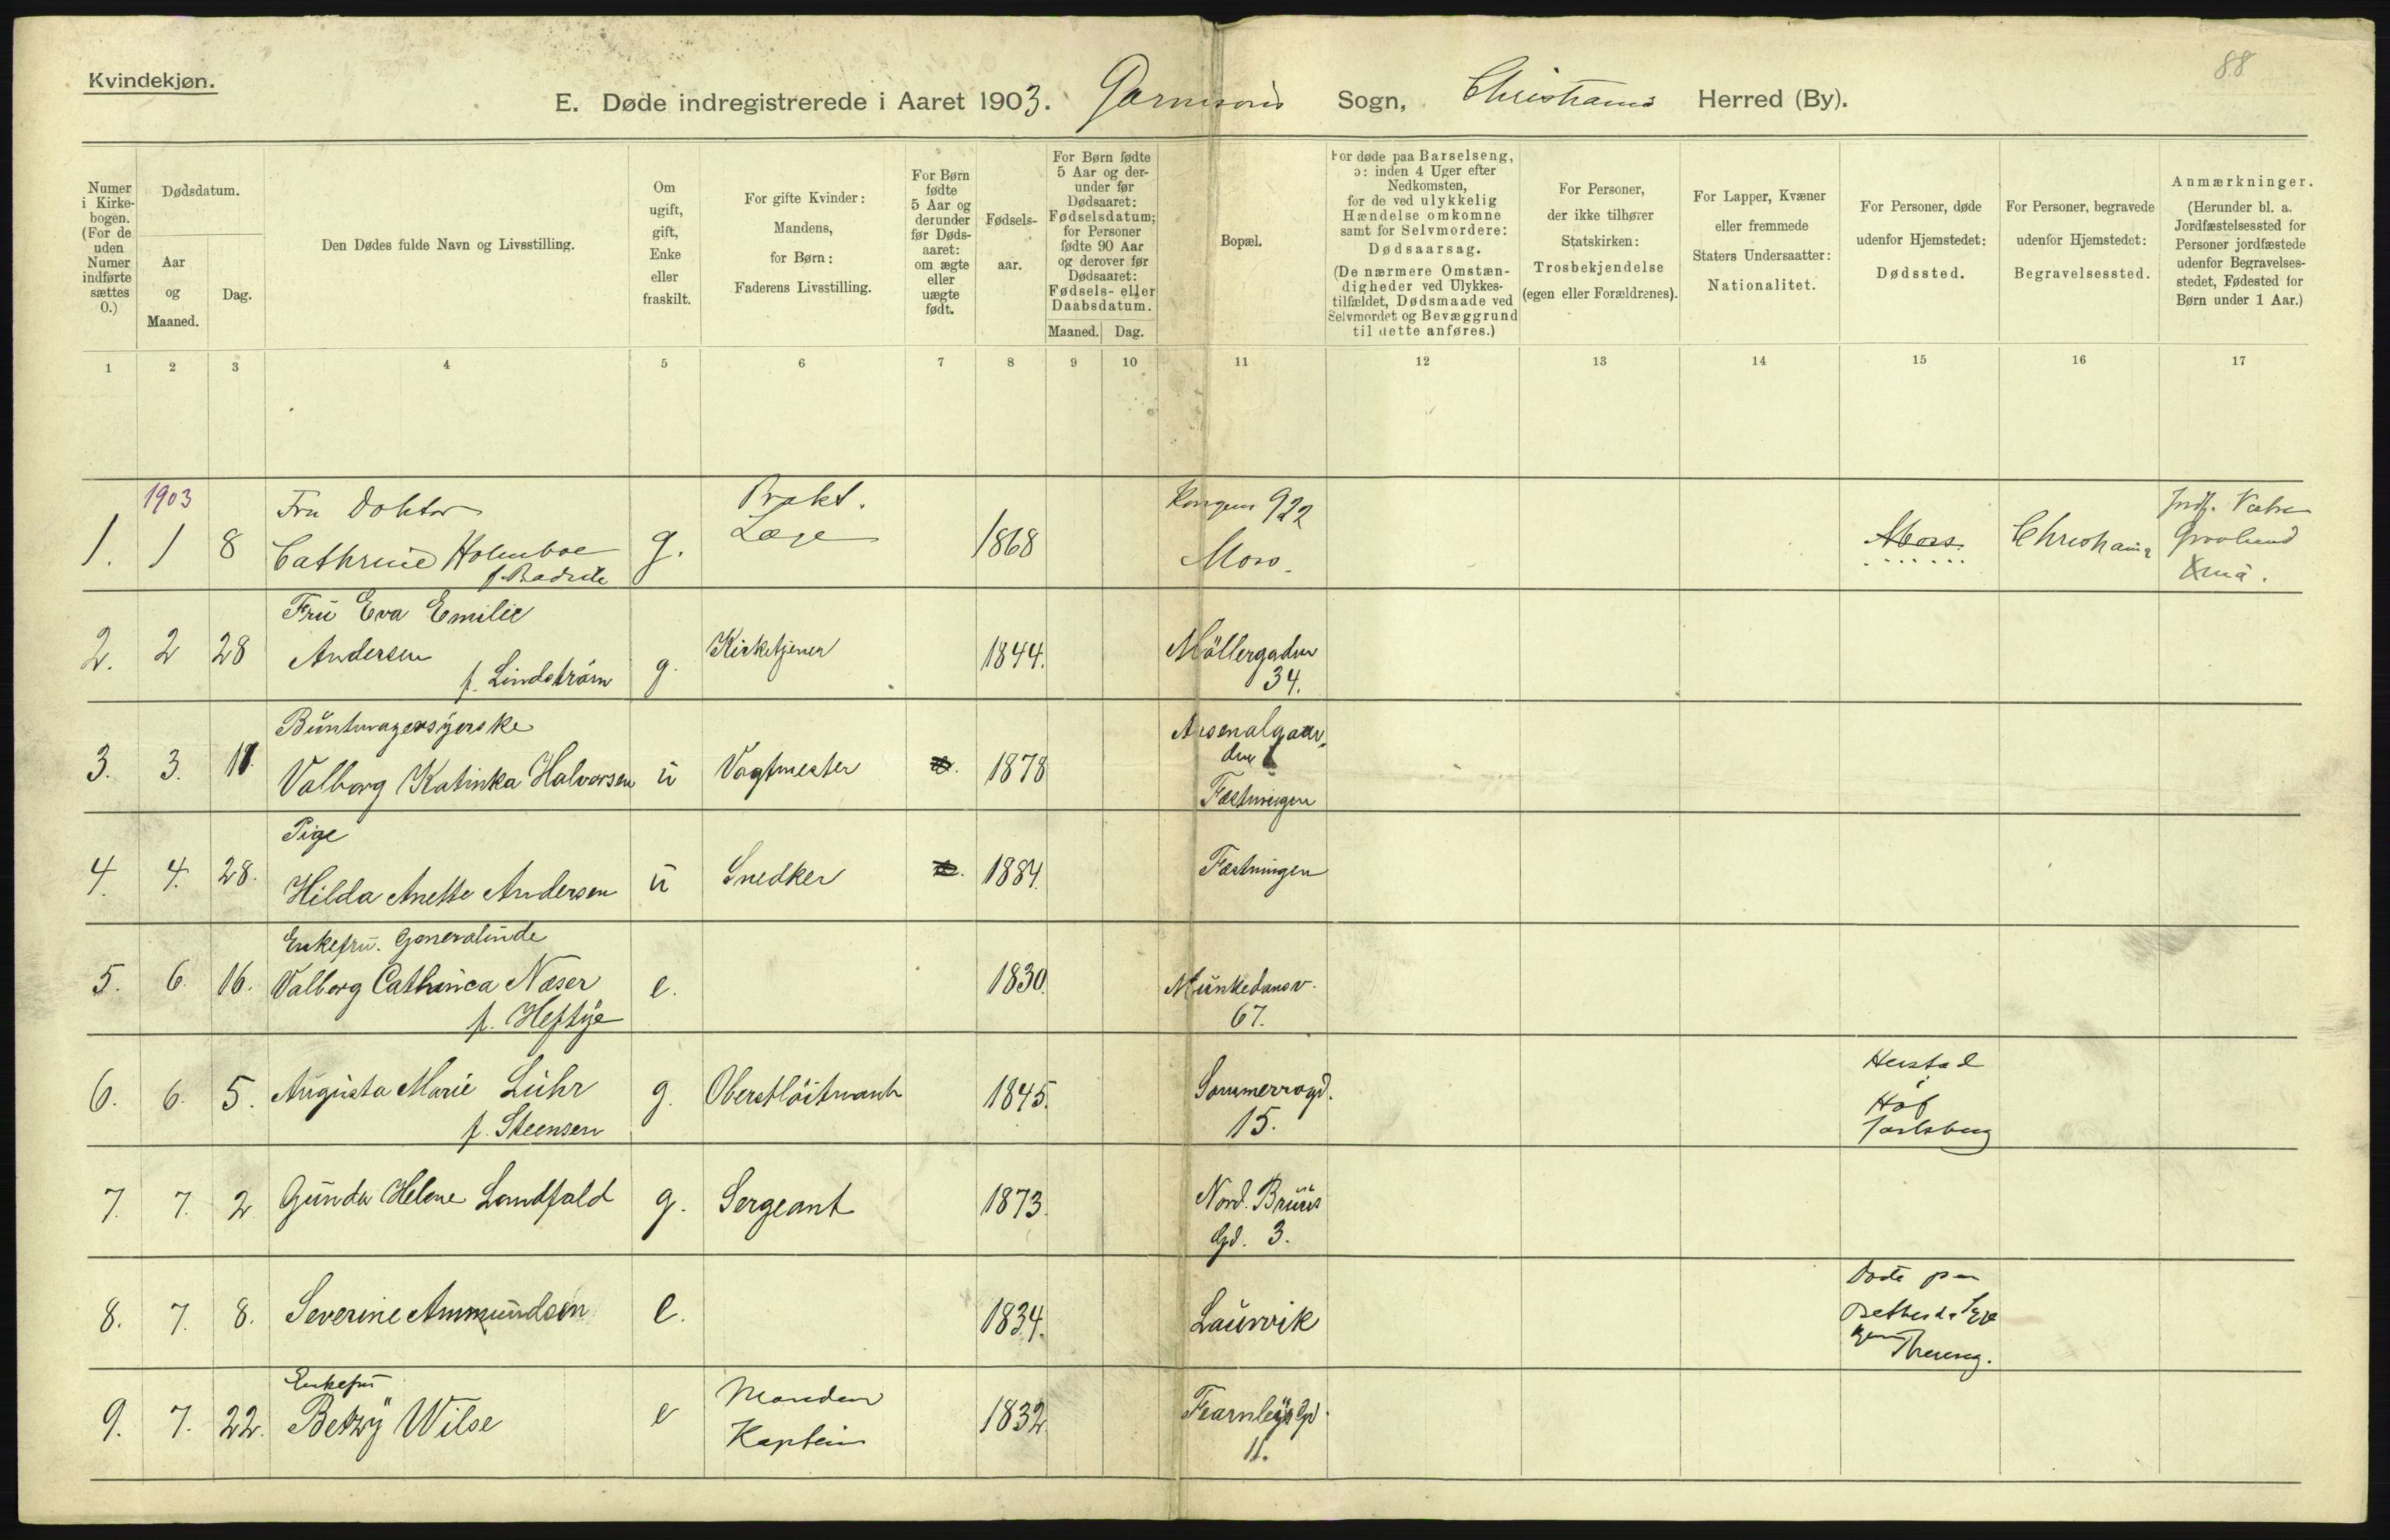 88
Kvindekjøn.
E. Døde indregistrerede i Aaret 1903. Garnisons Sogn, Christiania Herred (By).
Numer i Kirkebogen. (For de uden Numer indførte sættes 0.)
Dødsdatum.
Aar og Maaned.
Dag.
Den Dødes fulde Navn og Livsstilling.
Om ugift, gift, Enke eller fraskilt.
For gifte Kvinder: Mandens, for Børn: Faderens Livsstilling.
For Børn fødte 5 Aar og derunder før Dødsaaret: om ægte eller uægte født.
Fødselsaar.
For Børn fødte 5 Aar og derunder før Dødsaaret: Fødselsdatum; for Personer fødte 90 Aar og derover før Dødsaaret: Fødsels- eller Daabsdatum.
Maaned. Dag.
Bopæl.
For døde paa Barselseng, ɔ: inden 4 Uger efter Nedkomsten, for de ved ulykkelig Hændelse omkomne samt for Selvmordere: Dødsaarsag. (De nærmere Omstændigheder ved Ulykkestilfældet, Dødsmaade ved Selvmordet og Bevæggrund til dette anføres.)
For Personer, der ikke tilhører Statskirken: Trosbekjendelse (egen eller Forældrenes).
For Lapper, Kvæner eller fremmede Staters Undersaatter: Nationalitet.
For Personer, døde udenfor Hjemstedet: Dødssted.
For Personer, begravede udenfor Hjemstedet: Begravelsessted.
Anmærkninger. (Herunder bl. a. Jordfæstelsessted for Personer jordfæstede udenfor Begravelsesstedet, Fødested for Børn under 1 Aar.)
1 2 3 4 5 6 7 8 9 10 11 12 13 14 15 16 17
1903
1. 1 8 Fru Doktor
Cathrine Holmboe
g. Prakt.
Læge
1868
922
Moss.
Moss.
Christiania
2. 2 28 Fru Eva Emilie
Andersen
f. Lindström
g. Kirketjener 1844. Möllergaden
34.
3. 3. 11. Buntmagersyerske
Valborg Katinka Halvorsen u Vagtmester 1878
Arsenalgaar-
den
Fæstningen
4. 4. 28. Pige
Hilda Anette Andersen u Snedker 1884. Fæstningen
5. 6. 16. Enkefru. Generalinde
Valborg Cathinca Næser
f. Heftye
e. 1830. Munkedamsv.
67.
6. 6. 5. Augusta Marie Lühr
f. Steensen
g. Oberstlöitnant 1845. Sommerrogd.
15.
Hof
Jarlsberg
7. 7. 2 Gunda Helene Landfald g. Sergeant 1873. Nord. Bruns
Gd. 3.
8. 7. 8. Severine Ammundsen e. 1834. Laurvik
9. 7. 22. Enkefru
Betzy Wilse
e Manden
Kaptein
1832 Fearnleys Gd.
11.